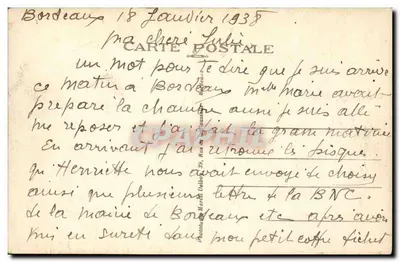 Bordeaux 18 Janvier 1938
ma cheré Julie
CARTE POSTALE
un mot pour te dire que je suis arrivé
ce matin a Bordeaux Mlle Marie avait
préparé la chambre aussi je suis allé
me reposer et j'ai fait la grasse matinée
En arrivant j'ai retrouvé les disques
qu'Henriette nous avait envoyé de choisy
ainsi que plusieurs lettre de la BNC.
de la mairie de Bordeaux etc après avoir
mis en sureté dans mon petit coffre